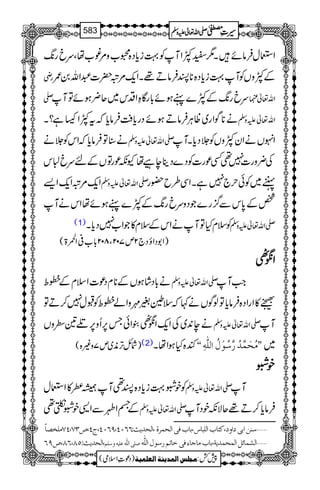 سیرتِ مصطفی صلی اللہ تعالیٰ علیہ وسلم
583
استعمال فرمائے ہیں۔ مگر سفید کپڑا آپ کو بہت زیادہ محبوب و مرغوب تھا، سرخ رنگ
کے کپڑوں کو آپ بہت زیادہ ناپسند فرماتے تھے۔ ایک مرتبہ حضرت عبداللہ بن عمر رضی
اللہ تعالیٰ عنہما سرخ رنگ کے کپڑے پہنے ہوئے بارگاہِ اقدس میں حاضر ہوئے تو آپ صلی
اللہ تعالیٰ علیہ وسلم نے ناگواری ظاہر فرماتے ہوئے دریافت فرمایا کہ یہ کپڑا کیسا ہے؟۔
انہوں نے ان کپڑوں کو جلا دیا۔ آپ صلی اللہ تعالیٰ علیہ وسلم نے سنا تو فرمایا کہ اس کو جلانے
کی ضرورت نہیں تھی کسی عورت کو دے دینا چاہیے تھا کیونکہ عورتوں کے لئے سرخ لباس
پہننے میں کوئی حرج نہیں ہے۔ اسی طرح حضور صلی اللہ تعالیٰ علیہ وسلم ایک مرتبہ ایک ایسے
شخص کے پاس سے گزرے جو دو سرخ رنگ کے کپڑے پہنے ہوئے تھا اس نے آپ
صلی اللہ تعالیٰ علیہ وسلم کو سلام کیا تو آپ نے اس کے سلام کا جواب نہیں دیا۔(1)
(ابوداؤد ج۲ ص۲۰۷، ۲۰۸ باب فی الحمرۃ)
انگوٹھی
جب آپ صلی اللہ تعالیٰ علیہ وسلم نے بادشاہوں کے نام دعوت اسلام کے خطوط
بھیجنے کا ارادہ فرمایا تو لوگوں نے کہا کہ سلاطین بغیر مہر والے خطوط کو قبول نہیں کرتے تو
آپ صلی اللہ تعالیٰ علیہ وسلم نے چاندی کی ایک انگوٹھی بنوائی جس پر اوپر تلے تین سطروں
میں ”مُحَمَّدٌ رَّسُوْلُ اللّٰہِ“ کندہ کیا ہوا تھا۔(2) (شمائل ترمذی ص۷ وغیرہ)
خوشبو
آپ صلی اللہ تعالیٰ علیہ وسلم کو خوشبو بہت زیادہ پسند تھی آپ ہمیشہ عطر کا استعمال
فرمایا کرتے تھے حالانکہ خود آپ صلی اللہ تعالیٰ علیہ وسلم کے جسم اطہر سے ایسی خوشبو نکلتی تھی
سنن ابی داود، کتاب اللباس، باب فی الحمرۃ، الحدیث: ۴۰۶۶، ۴۰۶۹، ج۴، ص۷۳، ۷۴ ملخصاً
الشمائل المحمدیۃ، باب ماجاء فی ذکر خاتم رسول اللّٰہ صلی اللہ علیہ وسلم، الحدیث: ۸۵، ۸۶، ص۶۹
پیش کش: مجلس المدینۃ العلمیۃ (دعوتِ اسلامی)